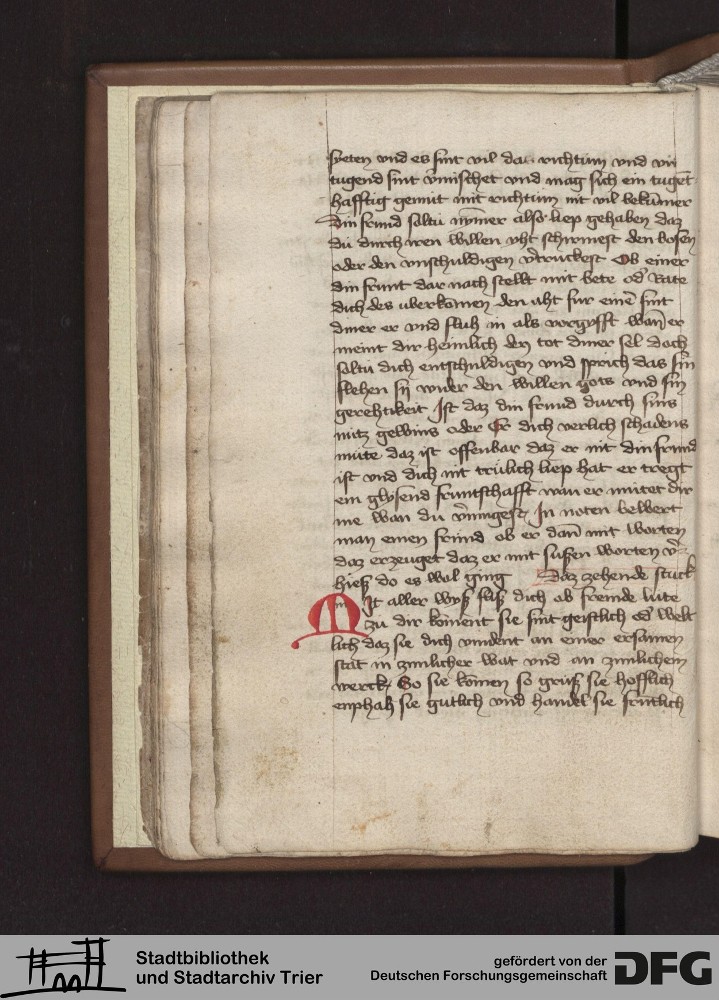 syeten vnd es sint vil da richtum vnd vn
tugend sint vmischet vnd mag sich ein tuget
hafftig gemut mit richtum nit vil bekumer
din frund saltu nymer also liep gehaben daz
du durch iren willen vht schirmest den bosen
oder den vnschuldigen vtruckest Ob einer
din frunt dar nach stellt mit bete od Rate
dich des uberkomen den aht fur eine fint
diner er vnd fluh in als vorgyfft wan er
meint dir heimlich den tot diner sel doch
saltu dich entschuldigen vnd sprich das sin
flehen sy wider den willen gots vnd sin
gerehtikeit Ist daz din frund durch sins
nutz gewins oder Er dich verlich schadens
mute daz ist offenbar daz er nit din frund
ist vnd dich nit trulich liep hat er tregt
ein glysend fruntschafft wan er mutet dir
me wan du vmugest In noten bewert
man einen frund ob er dan mit worten
daz erzeuget daz er mit sussen worten v
hieß do es wol ging Daz zehende stuck
Mit aller wyß flyß dich ob fremde lute
zu dir koment sie sint geistlich od welt
lich daz sie dich vindent an einer ersamen
stat in zimlicher wat vnd an zimlichem
werck So sie komen so gruß sie hofflich
enphah sie gutlich vnd handel sie fruntlich
Stadtbibliothek
und Stadtarchiv Trier
gefördert von der
Deutschen Forschungsgemeinschaft
DFG